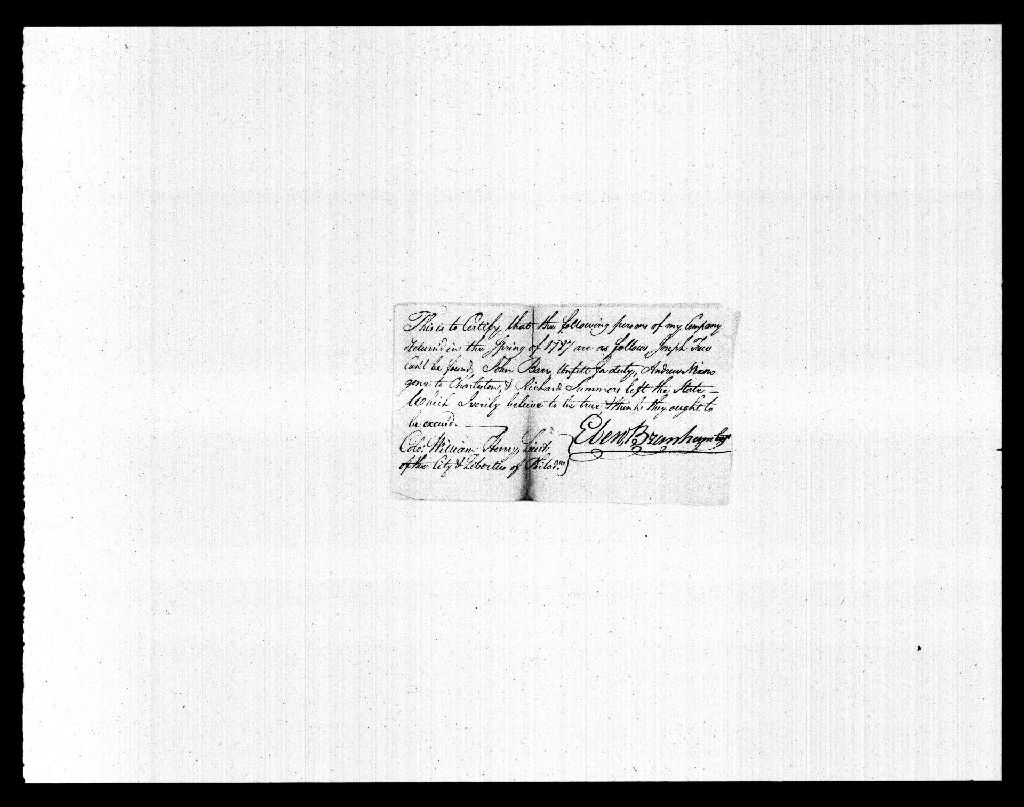 This is to Certify, that the following persons of my Company
returned in the Spring of 1787 are as follows, Joseph
Can't be found, John Barry Unfitt for duty, Andrew
gone to Charleston, & Richard Summers left the State
Which I verily believe to be true & think they ought to
be excusd.
Colo. William Henry, Lieut.
of the City & Liberties of Philada.
Eben Branham